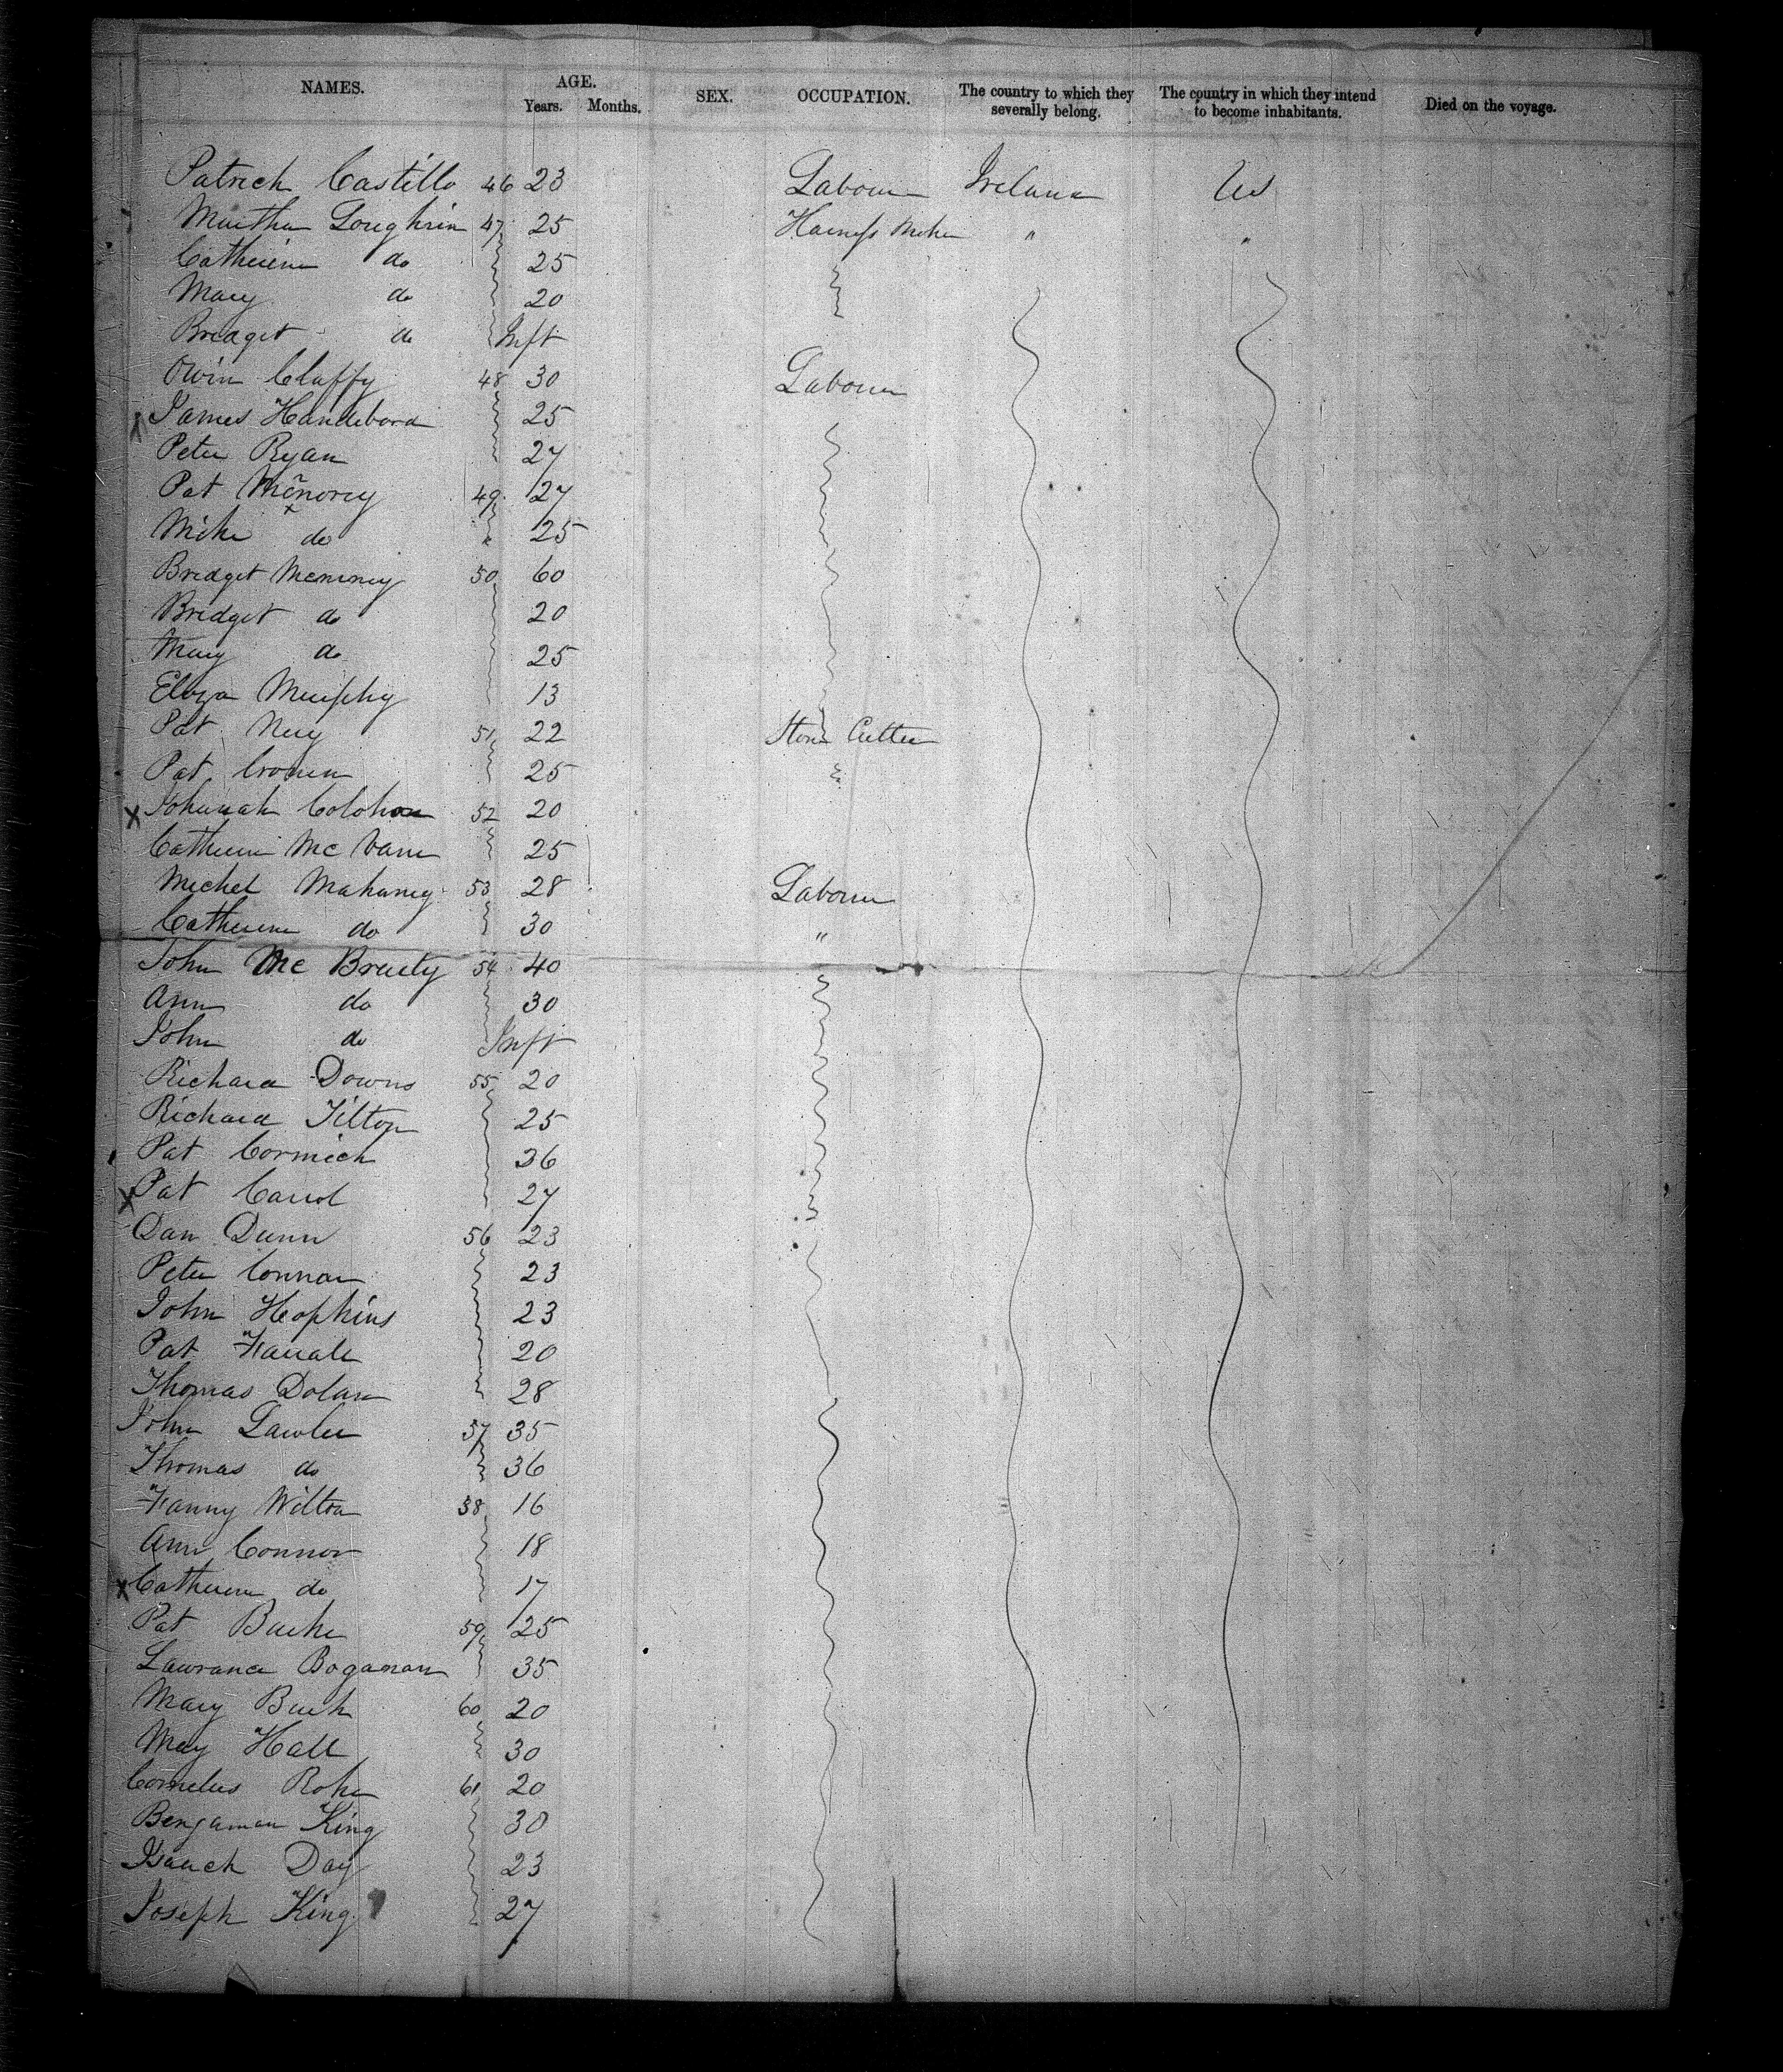 NAMES. AGE. Years. Months. SEX. OCCUPATION. The country to which they severally belong. The country in which they intend to become inhabitants. Died on the voyage.
Patrick Castillo 46 23 Labour Ireland US
Martha Loughrin 47 25 Harness Maker " "
Catherine do 25
Mary do 20
Bridget do Inft
Owin Claffy 48 30 Labour
X James 25
Peter Ryan 27
Pat 49 27
Mike do " 25
Bridget 50 60
Bridget do 20
Mary do 25
Eliza Murphy 13
Pat 51 22 Stone Cutter
Pat Cronin 25
X Johanah Colohan 52 20
Catherine Mc 25
Michel Mahaney 53 28 Labour
Catherine do 30 "
John Mc 54 40
Ann do 30
John do Inft
Richard Downs 55 20
Richard Tilton 25
Pat Cormick 36
X Pat Carrol 27
Dan Dunn 56 23
Peter Connor 23
John Hopkins 23
Pat 20
Thomas Dolan 28
John Lawler 57 35
Thomas do 36
Fanny Wilton 58 16
Ann Connor 18
X Catherine do 17
Pat Burke 59 25
Lawrance Bogaman 35
Mary Burk 60 20
May Hall 30
Cornelus 61 20
Bengaman King 30
Isaack Day 23
Joseph King 27